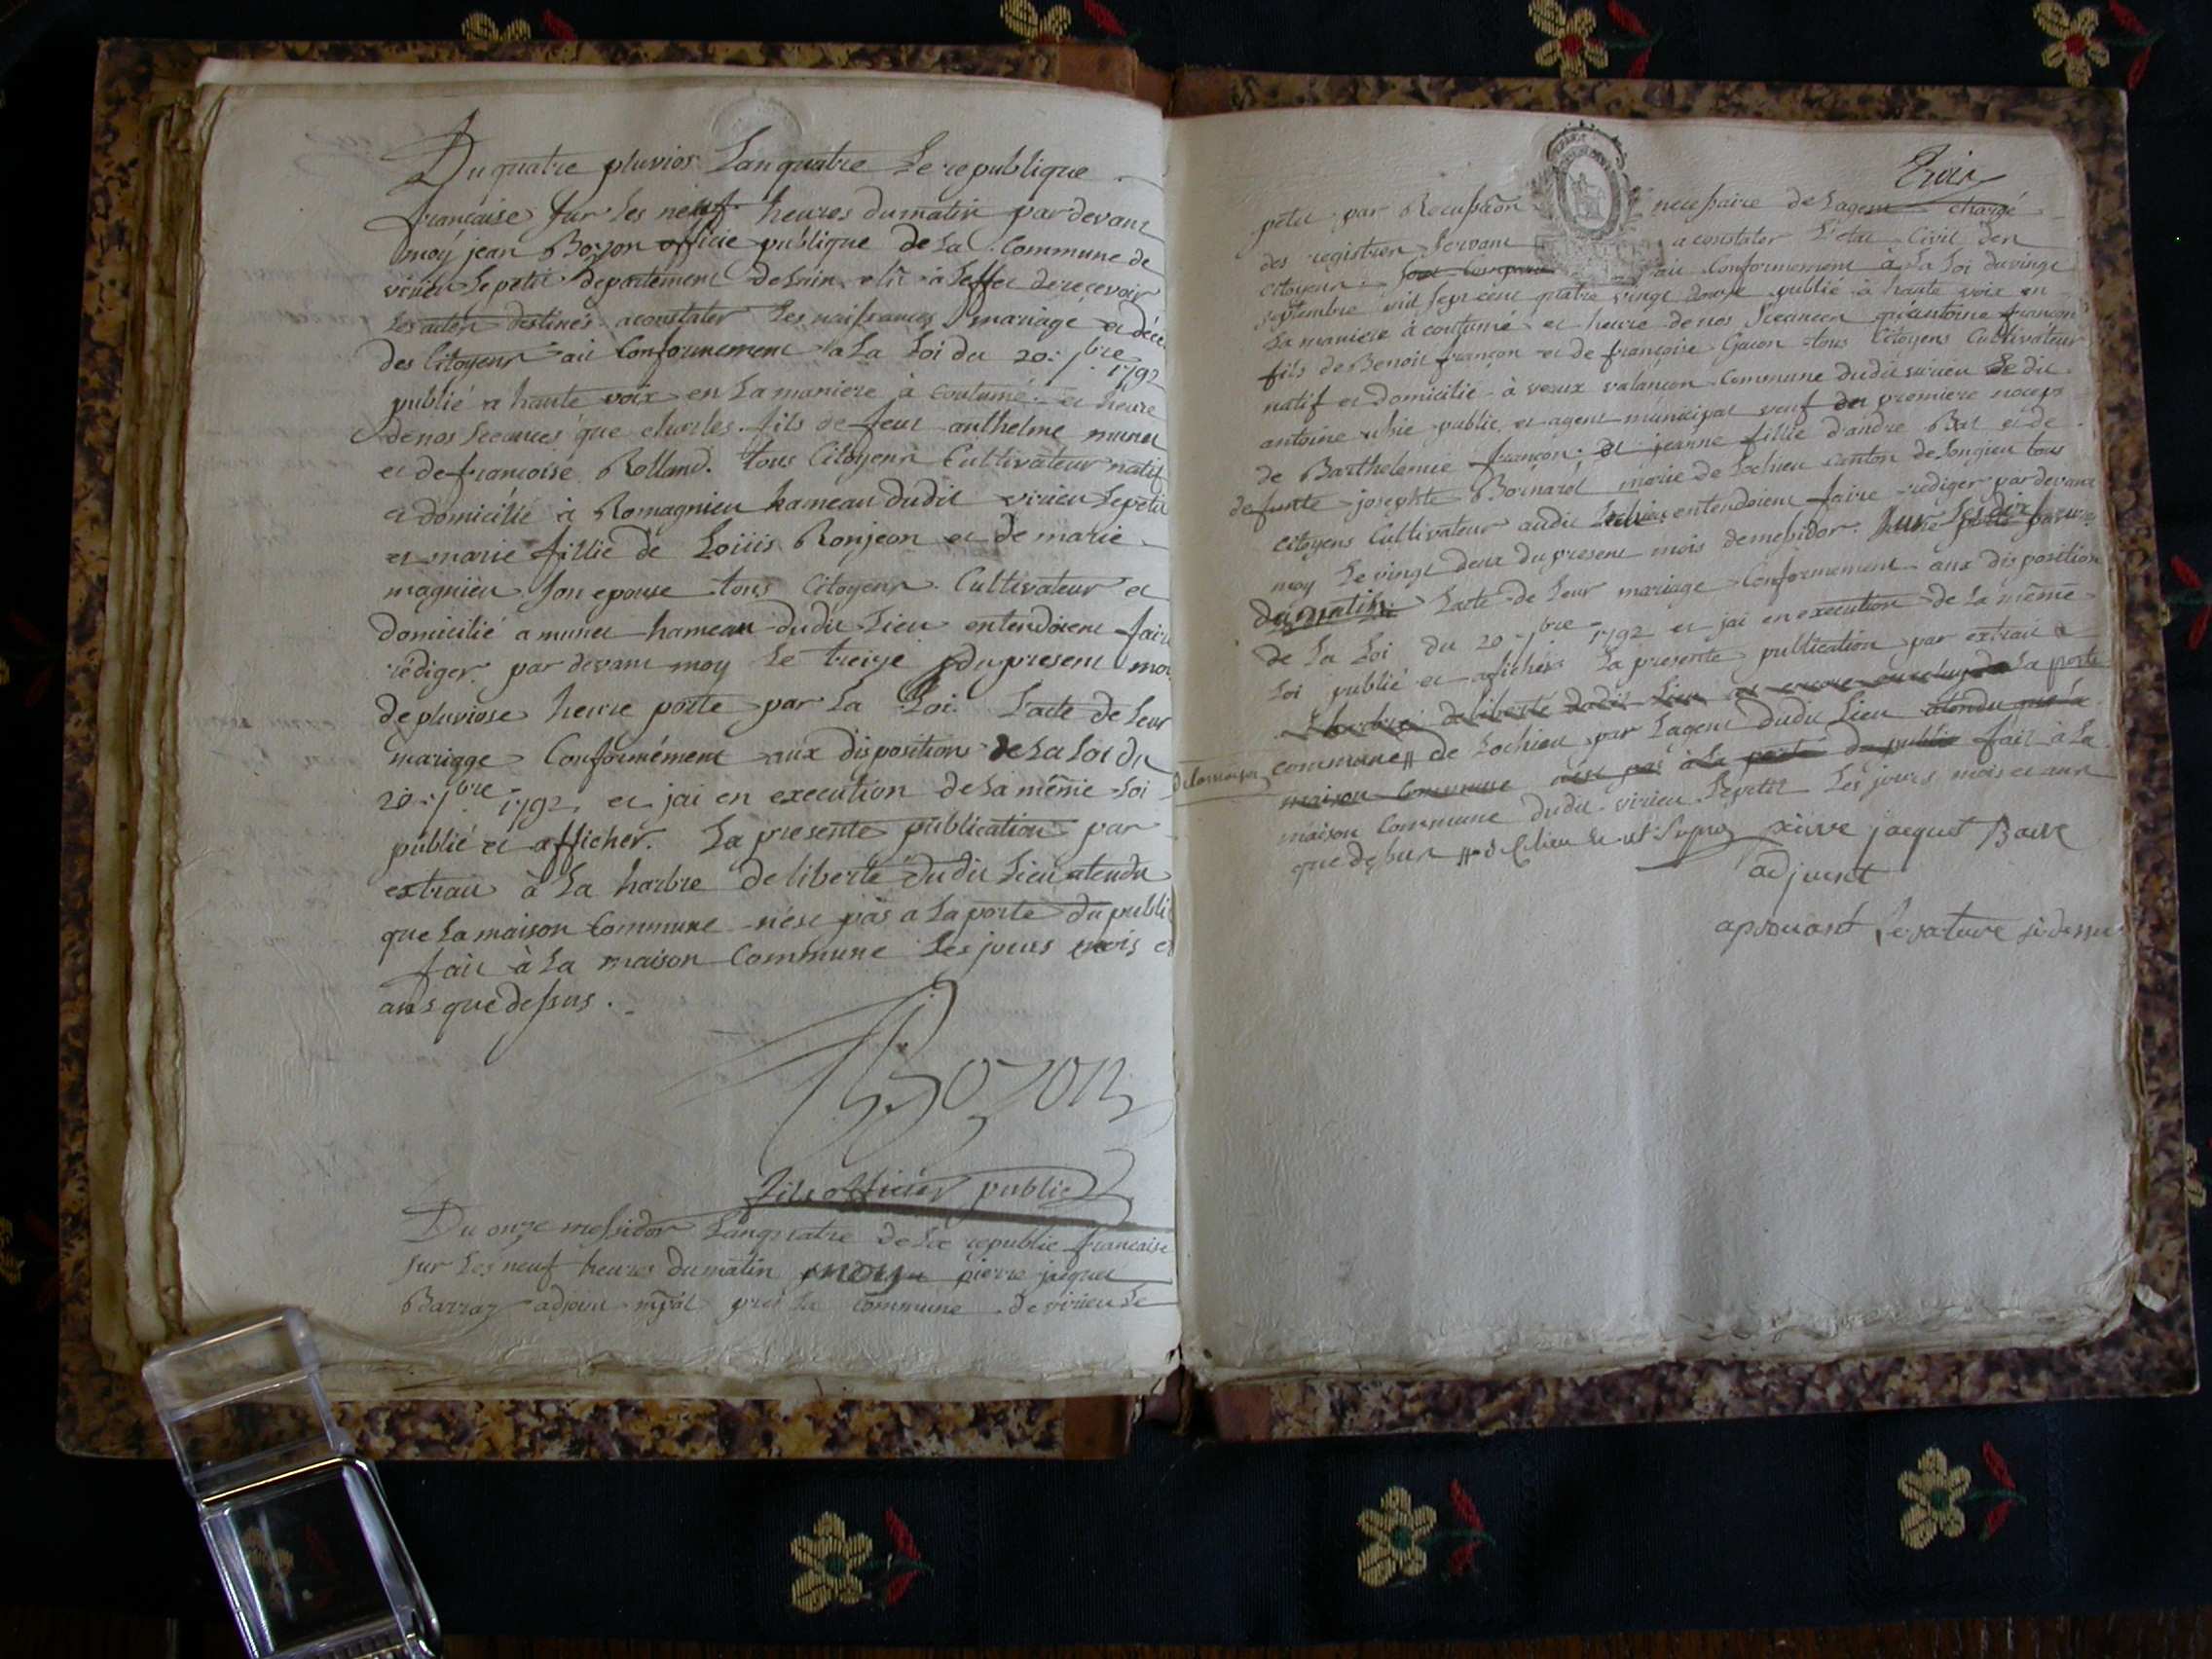 Du quatre pluvios Lan quatre De republique
francaise sur Les neuf heures du matin par devant
moy jean Bozon officie publique de La Commune de
virieu Le petit departement de Lain elû à Leffet de recevoir
Les acten destinés a constater Les naissances mariage et décé
des Citoyens ait Conformement a La Loi du 20. 7bre 1792
publié a haute voix en La maniere à coutumé et heure
de nos seeances que charles fils de feu anthelme munet
et de francoise Rolland. tous Citoyens Cultivateur natif
et domicilié à Romagnieu hameau dudit virieu Le petit
et marie fillie de Loüis Ronjeon et de marie
magnieu son epouse tous Citoyens Cultivateur et
domicilié a munet hameau dudit Lieu entendoient faire
rédiger par devant moy Le treize du present moi
de pluviose heure porté par La Loi. Lacte de Leur
mariage Conformément aux disposition de La Loi du
20. 7bre 1792 et jai en execution de La même Loi
publié et afficher. La presente publication par
extrait à La harbre de liberté dudit Lieu atendu
que La maison Commune nést pas a La porté du publi
fait à La maison Commune Les jours mois et
ans que dessus.
Bozon
fils officier public
Du onze messidor Lanquatre de La republic francaise
sur Les neuf heures du matin moy pierre jaques
Barraz adjoin mpal pres La commune de virieu Le
Trois
petit par Recusaõn necessaire de Lagent chargé
des registren servant a constater L'etat Civil den
citoyens. ait Conformement à La Loi du vingt
septembre mil sept cent quatre vingt douze publié à haute voix en
La maniere à coutumé et heure de nos Sceancen quantoine francon
fils de Benoit françon et de françoise Gacon tous Citoyens Cultivateur
natif et domicilié à veaux valançon Commune dudit virieu Le dit
antoine public et agent municipal veuf den premiere noces
de Barthelemie françon. et jeanne fillie d'andre Bal et de
defunte josephte Bornard marie de Lochieu canton de Songieu tous
citoyens Cultivateur audit entendoient faire rediger par devant
moy Le vingt deux du present mois de mesidor. heure
du matin Lacte de Leur mariage Conformement aux disposition
de La Loi du 20 7bre 1792 et jai en execution de La même
Loi publié et afichér La presente publication par extrait a
Lharbre de liberté dudit Lieu et encore La porte
de la maison
commune de Lochieu par Lagent dudit Lieu atendu que La
maison Commune nest pas à La porté du public fait à La
maison Commune dudit virieu Le petit Les jours mois et ans
que desus pierre jacquet Barre
adjoint
aprouvant Le rature si dessus